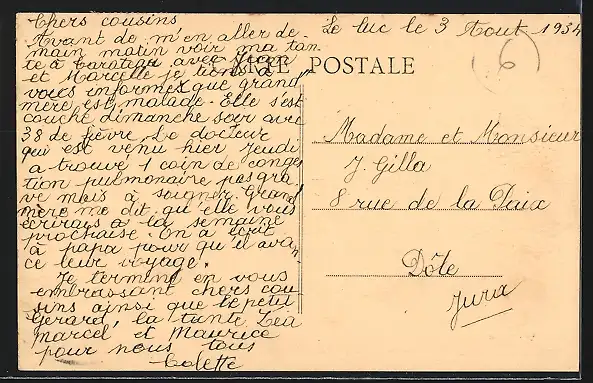 Le luc le 3 Aout 1934
CARTE POSTALE
6
Chers cousins
Avant de m'en aller de-
main matin voir ma tan-
te à avec Jean
et Marcelle je tiens à
vous informer que grand'
mère est malade. Elle s'est
couché dimanche soir avec
38 de fièvre. Le docteur
qui est venu hier Jeudi
a trouvé 1 coin de conges
tion pulmonaire pas gra-
ve mais à soigner. Grand'
mère me dit qu'elle vous
écrirais à la semaine
prochaise. On a écrit
à papa pour qu'il avan
ce leur voyage.
Je termine en vous
embrassant chers cou
sins ainsi que le petit
Gérard, la tante Léa
marcel et Maurice
pour nous tous
Colette
Madame et Monsieur
J. Gilla
8 rue de la Paix
Dôle
Jura